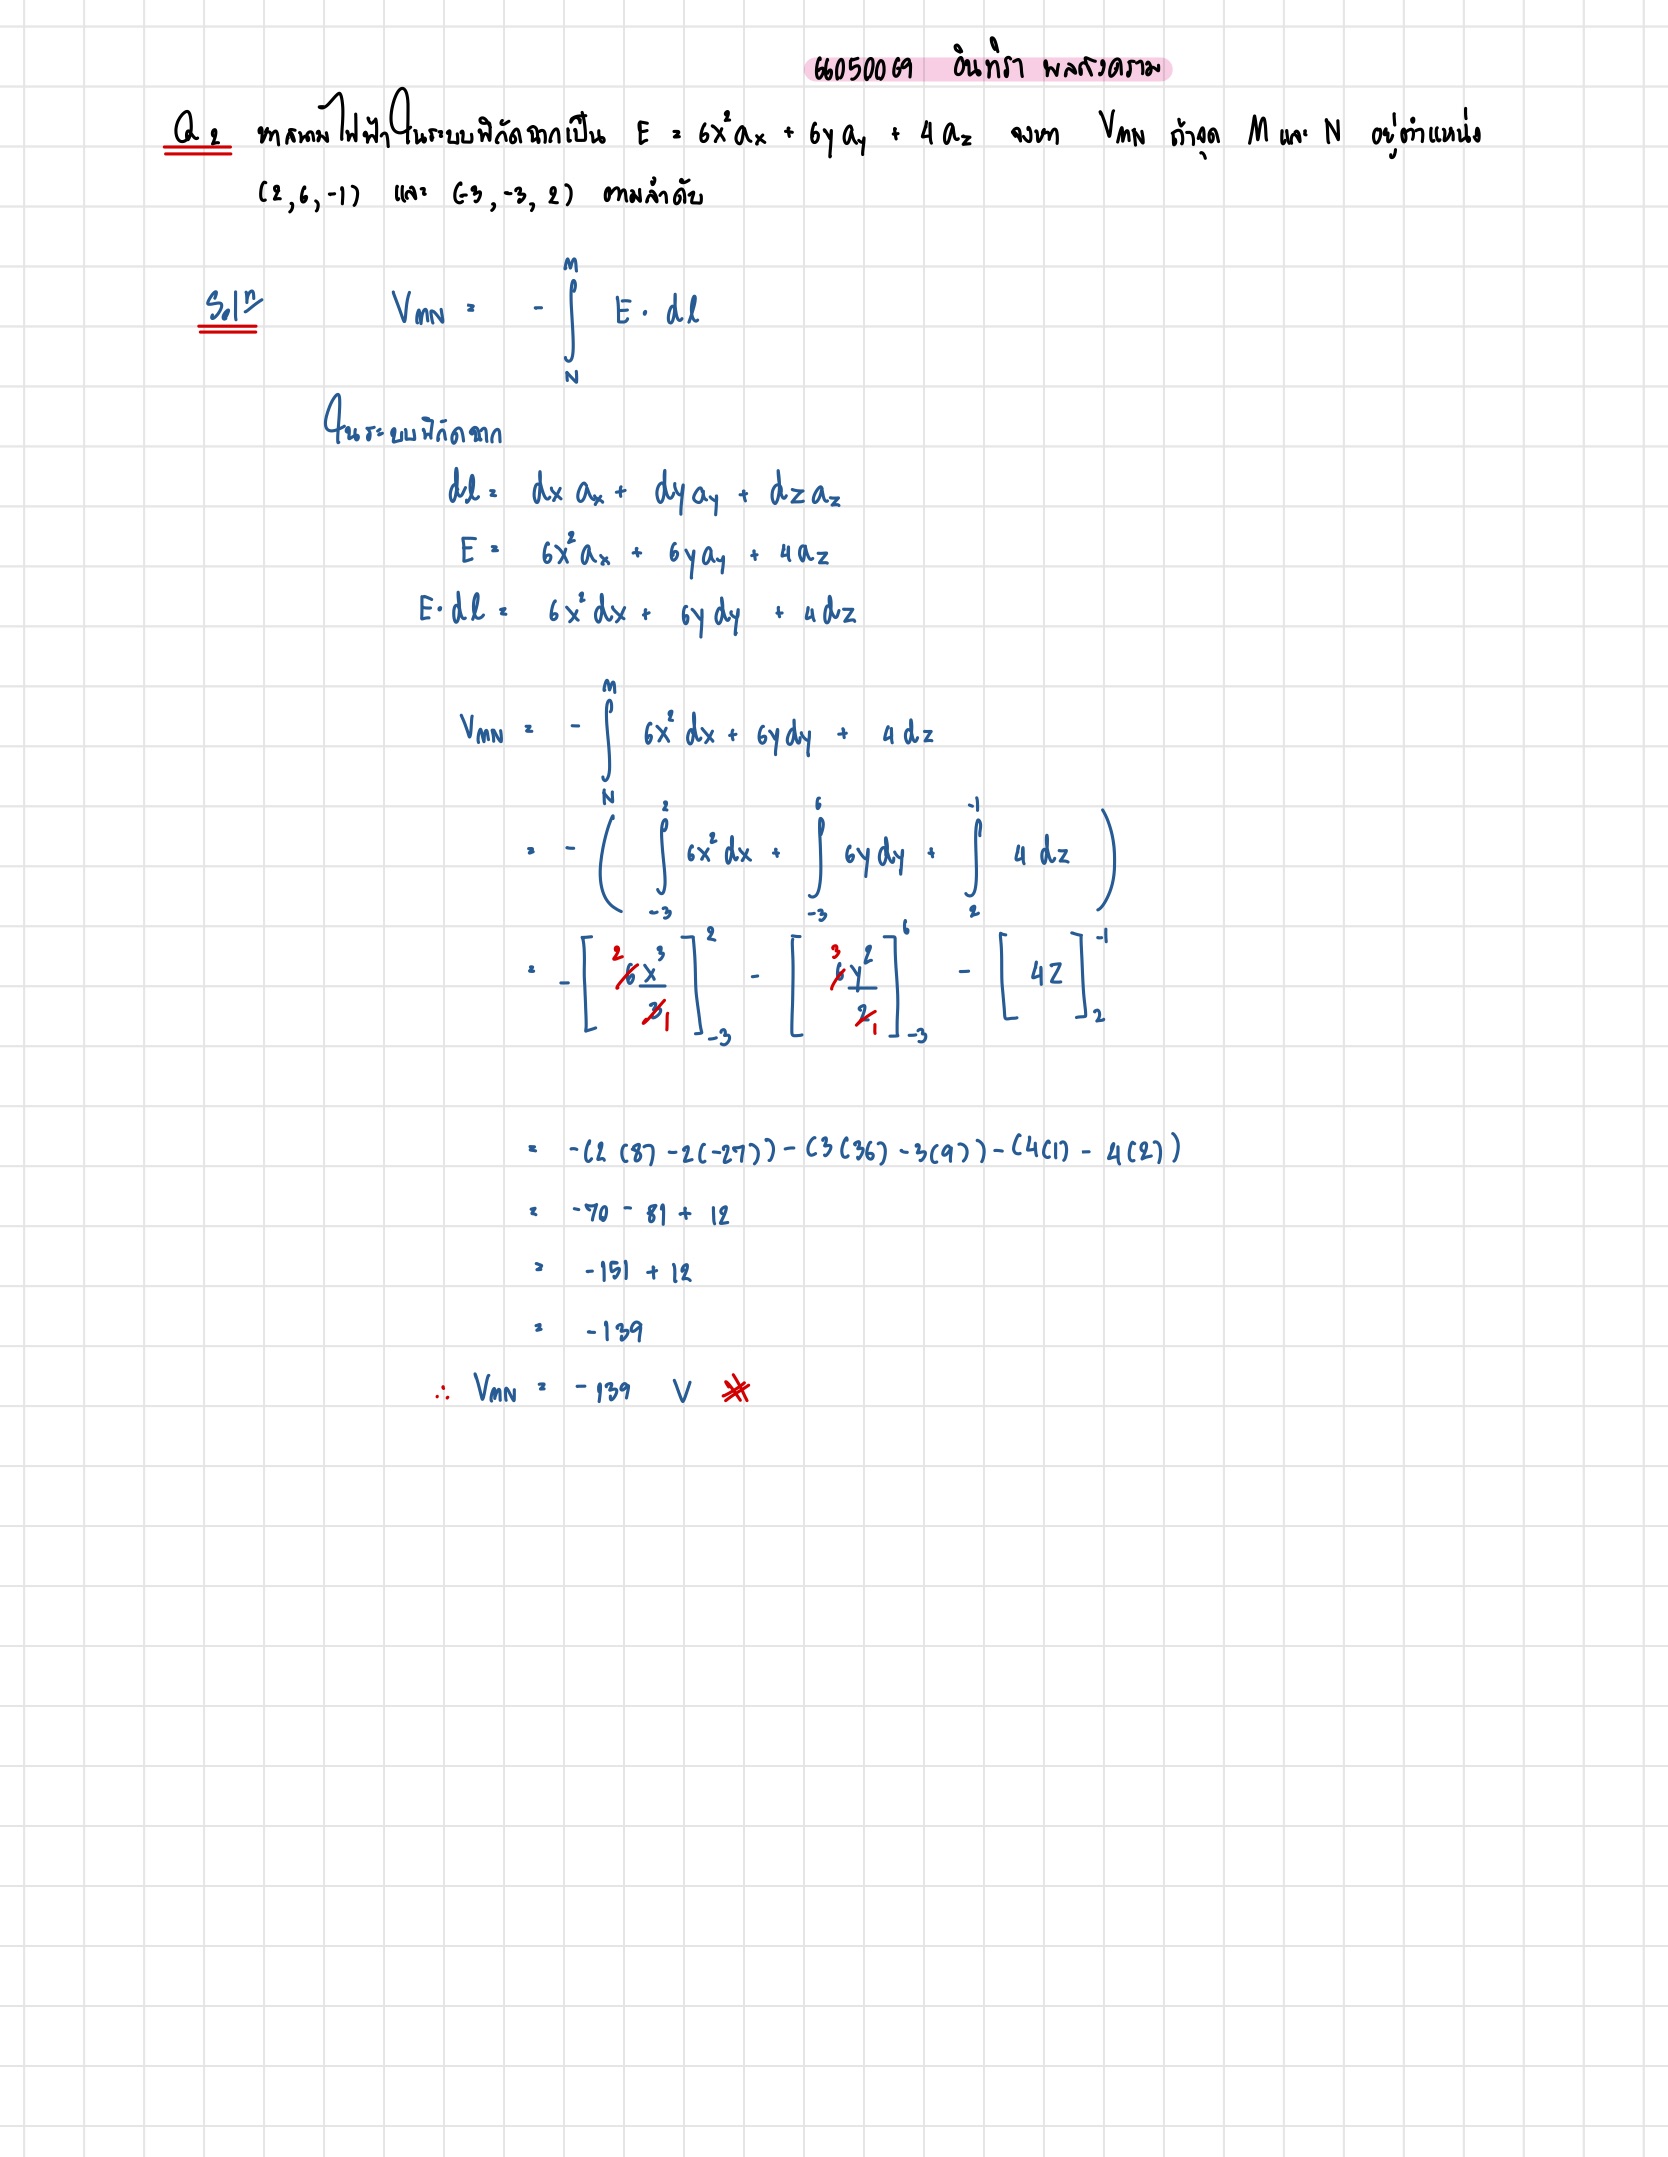 66050069 อินทิรา พลสงคราม
Q2 หาสนามไฟฟ้าในระบบพิกัดฉากเป็น E = 6x²aₓ + 6y a_y + 4 a_z จงหา V_MN ถ้าจุด M และ N อยู่ตำแหน่ง
(2, 6, -1) และ (-3, -3, 2) ตามลำดับ
Solⁿ V_MN = - ∫_N^M E · dl
ในระบบพิกัดฉาก
dl = dx aₓ + dy a_y + dz a_z
E = 6x²aₓ + 6y a_y + 4a_z
E · dl = 6x²dx + 6y dy + 4dz
V_MN = - ∫_N^M 6x²dx + 6y dy + 4 dz
= - ( ∫_-3^2 6x²dx + ∫_-3^6 6y dy + ∫_2^-1 4 dz )
= - [ 2 6x³/3 1 ]_-3^2 - [ 3 6y²/2 1 ]_-3^6 - [ 4z ]_2^-1
= -(2(8) -2(-27)) - (3(36) -3(9)) - (4(1) - 4(2))
= -70 - 81 + 12
= -151 + 12
= -139
∴ V_MN = -139 V